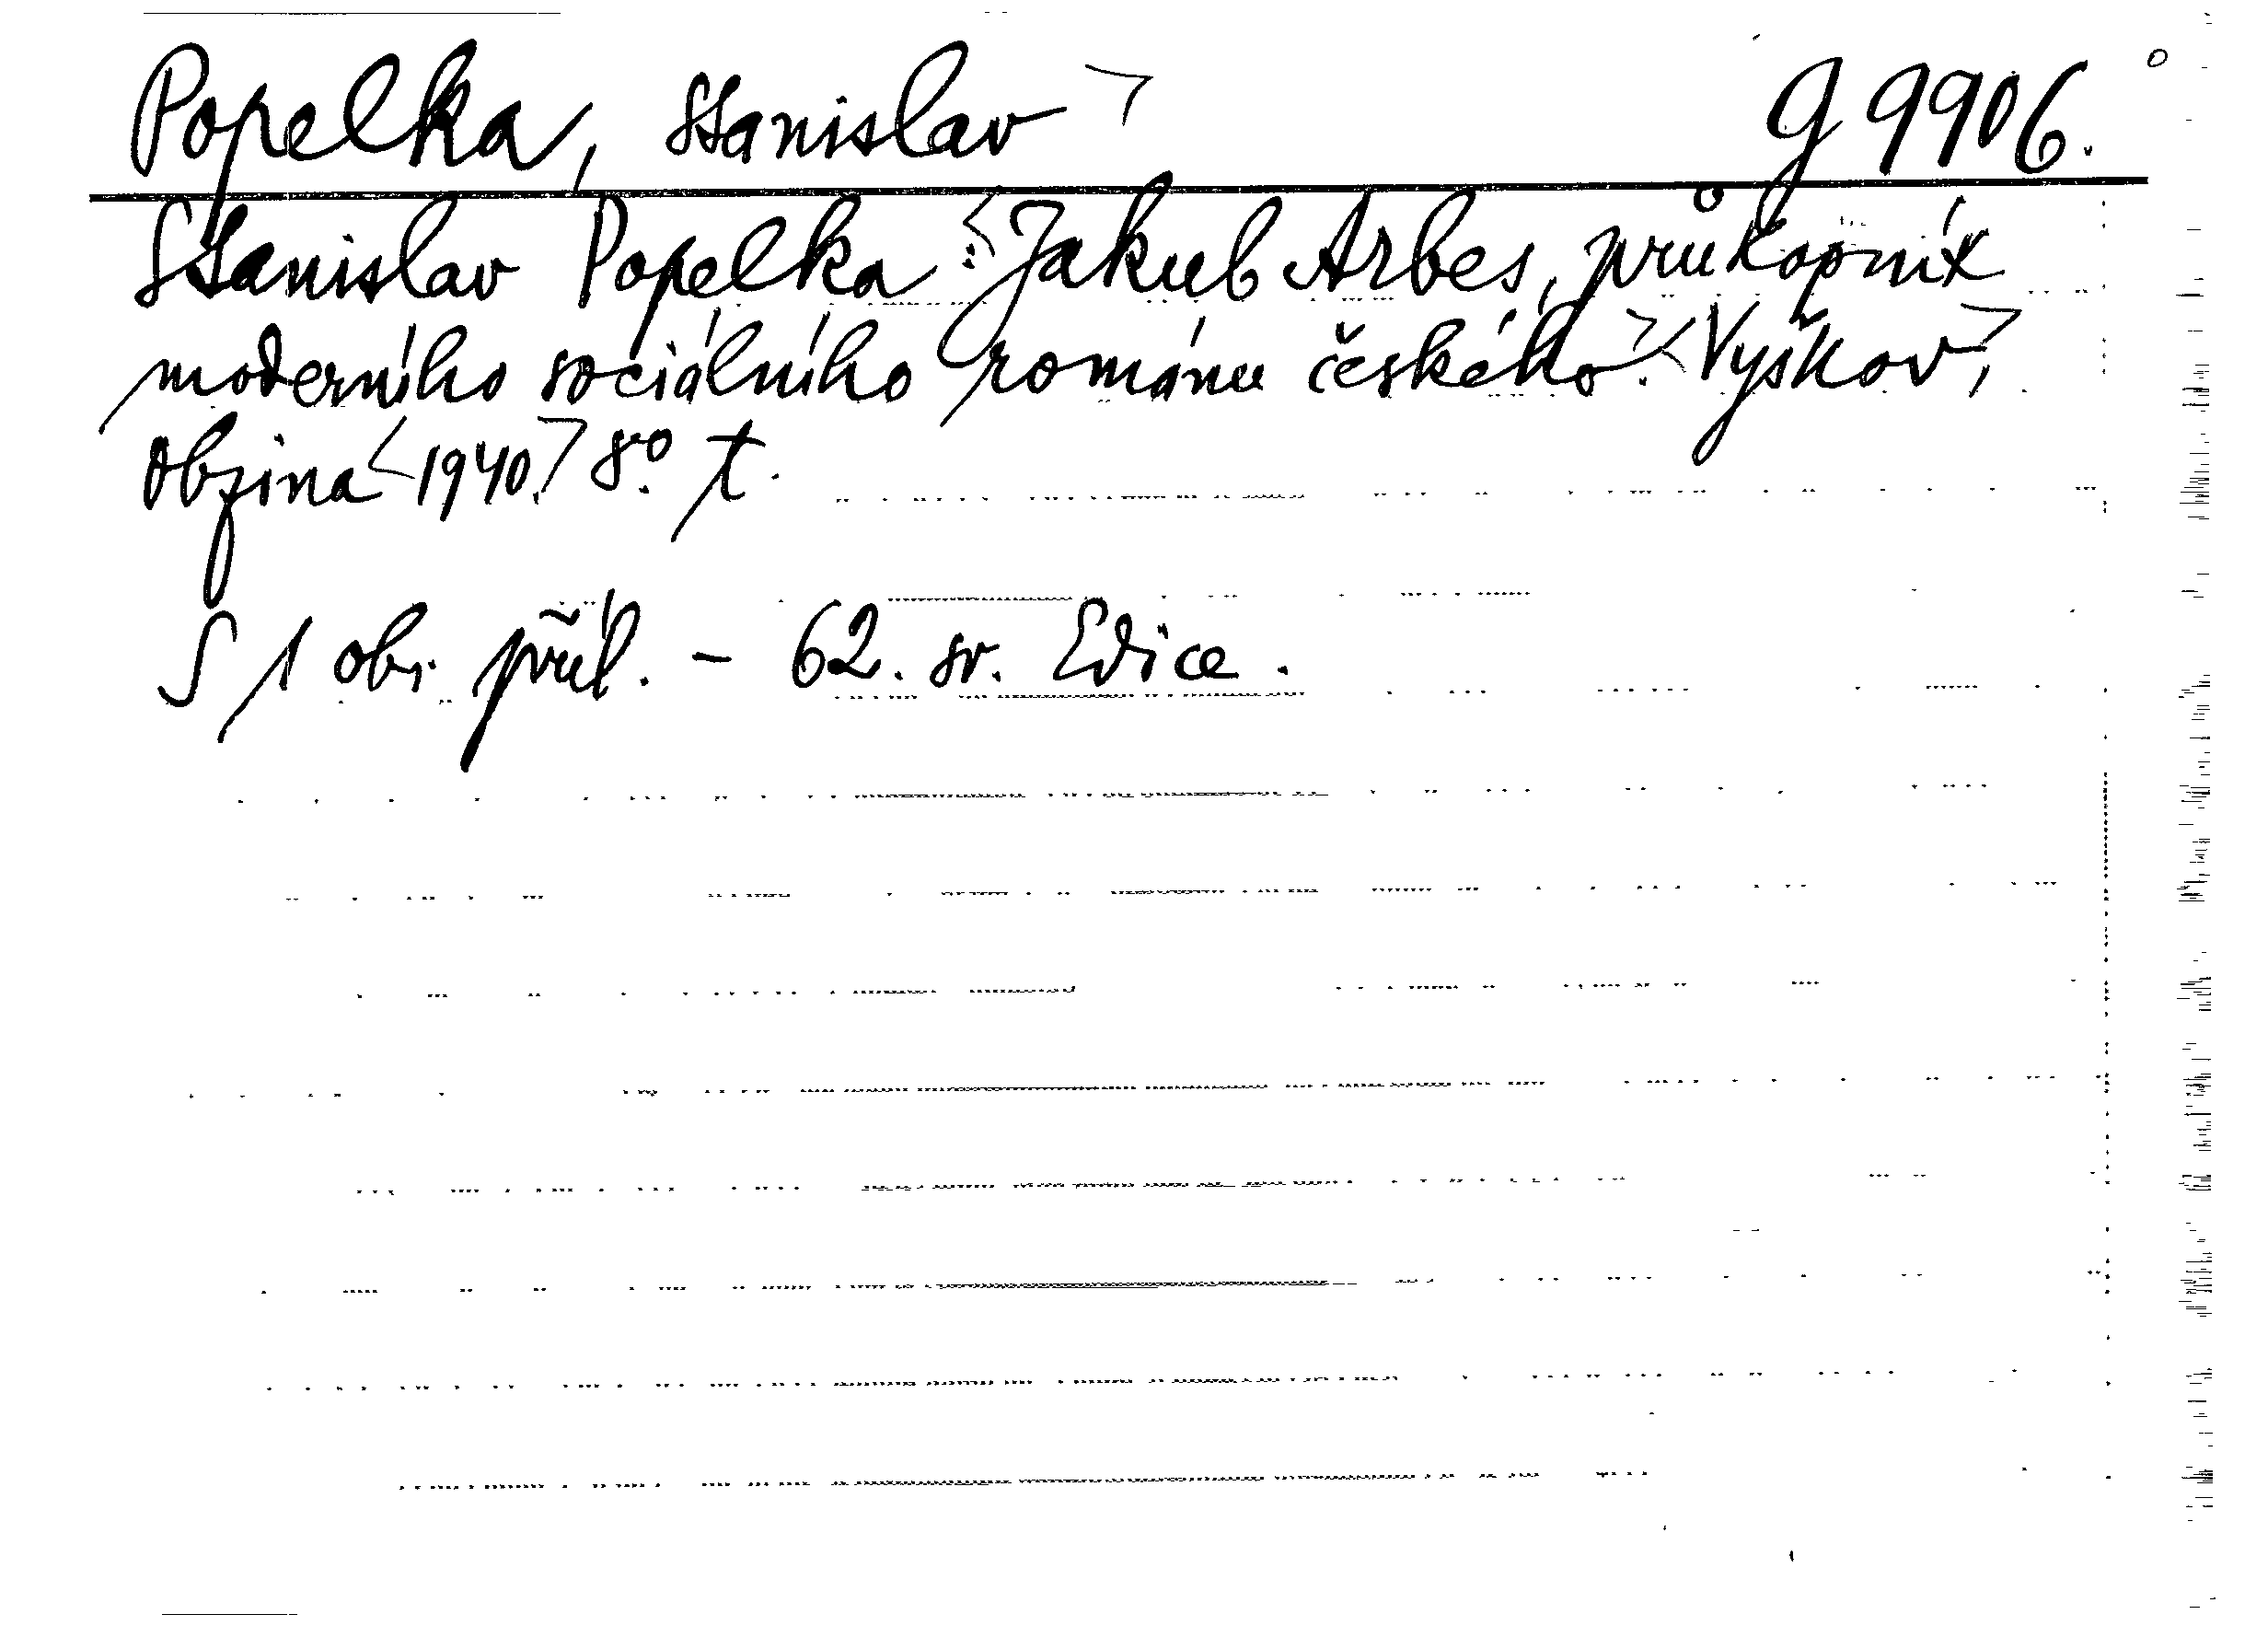 Popelka, Stanislav g 9906.
Stanislav Popelka: Jakub Arbes, průkopník
moderního sociálního románu českého. Vyškov,
Obzina 1940. 8° t.
S 1 obr. příl. - 62. sv. Edice.